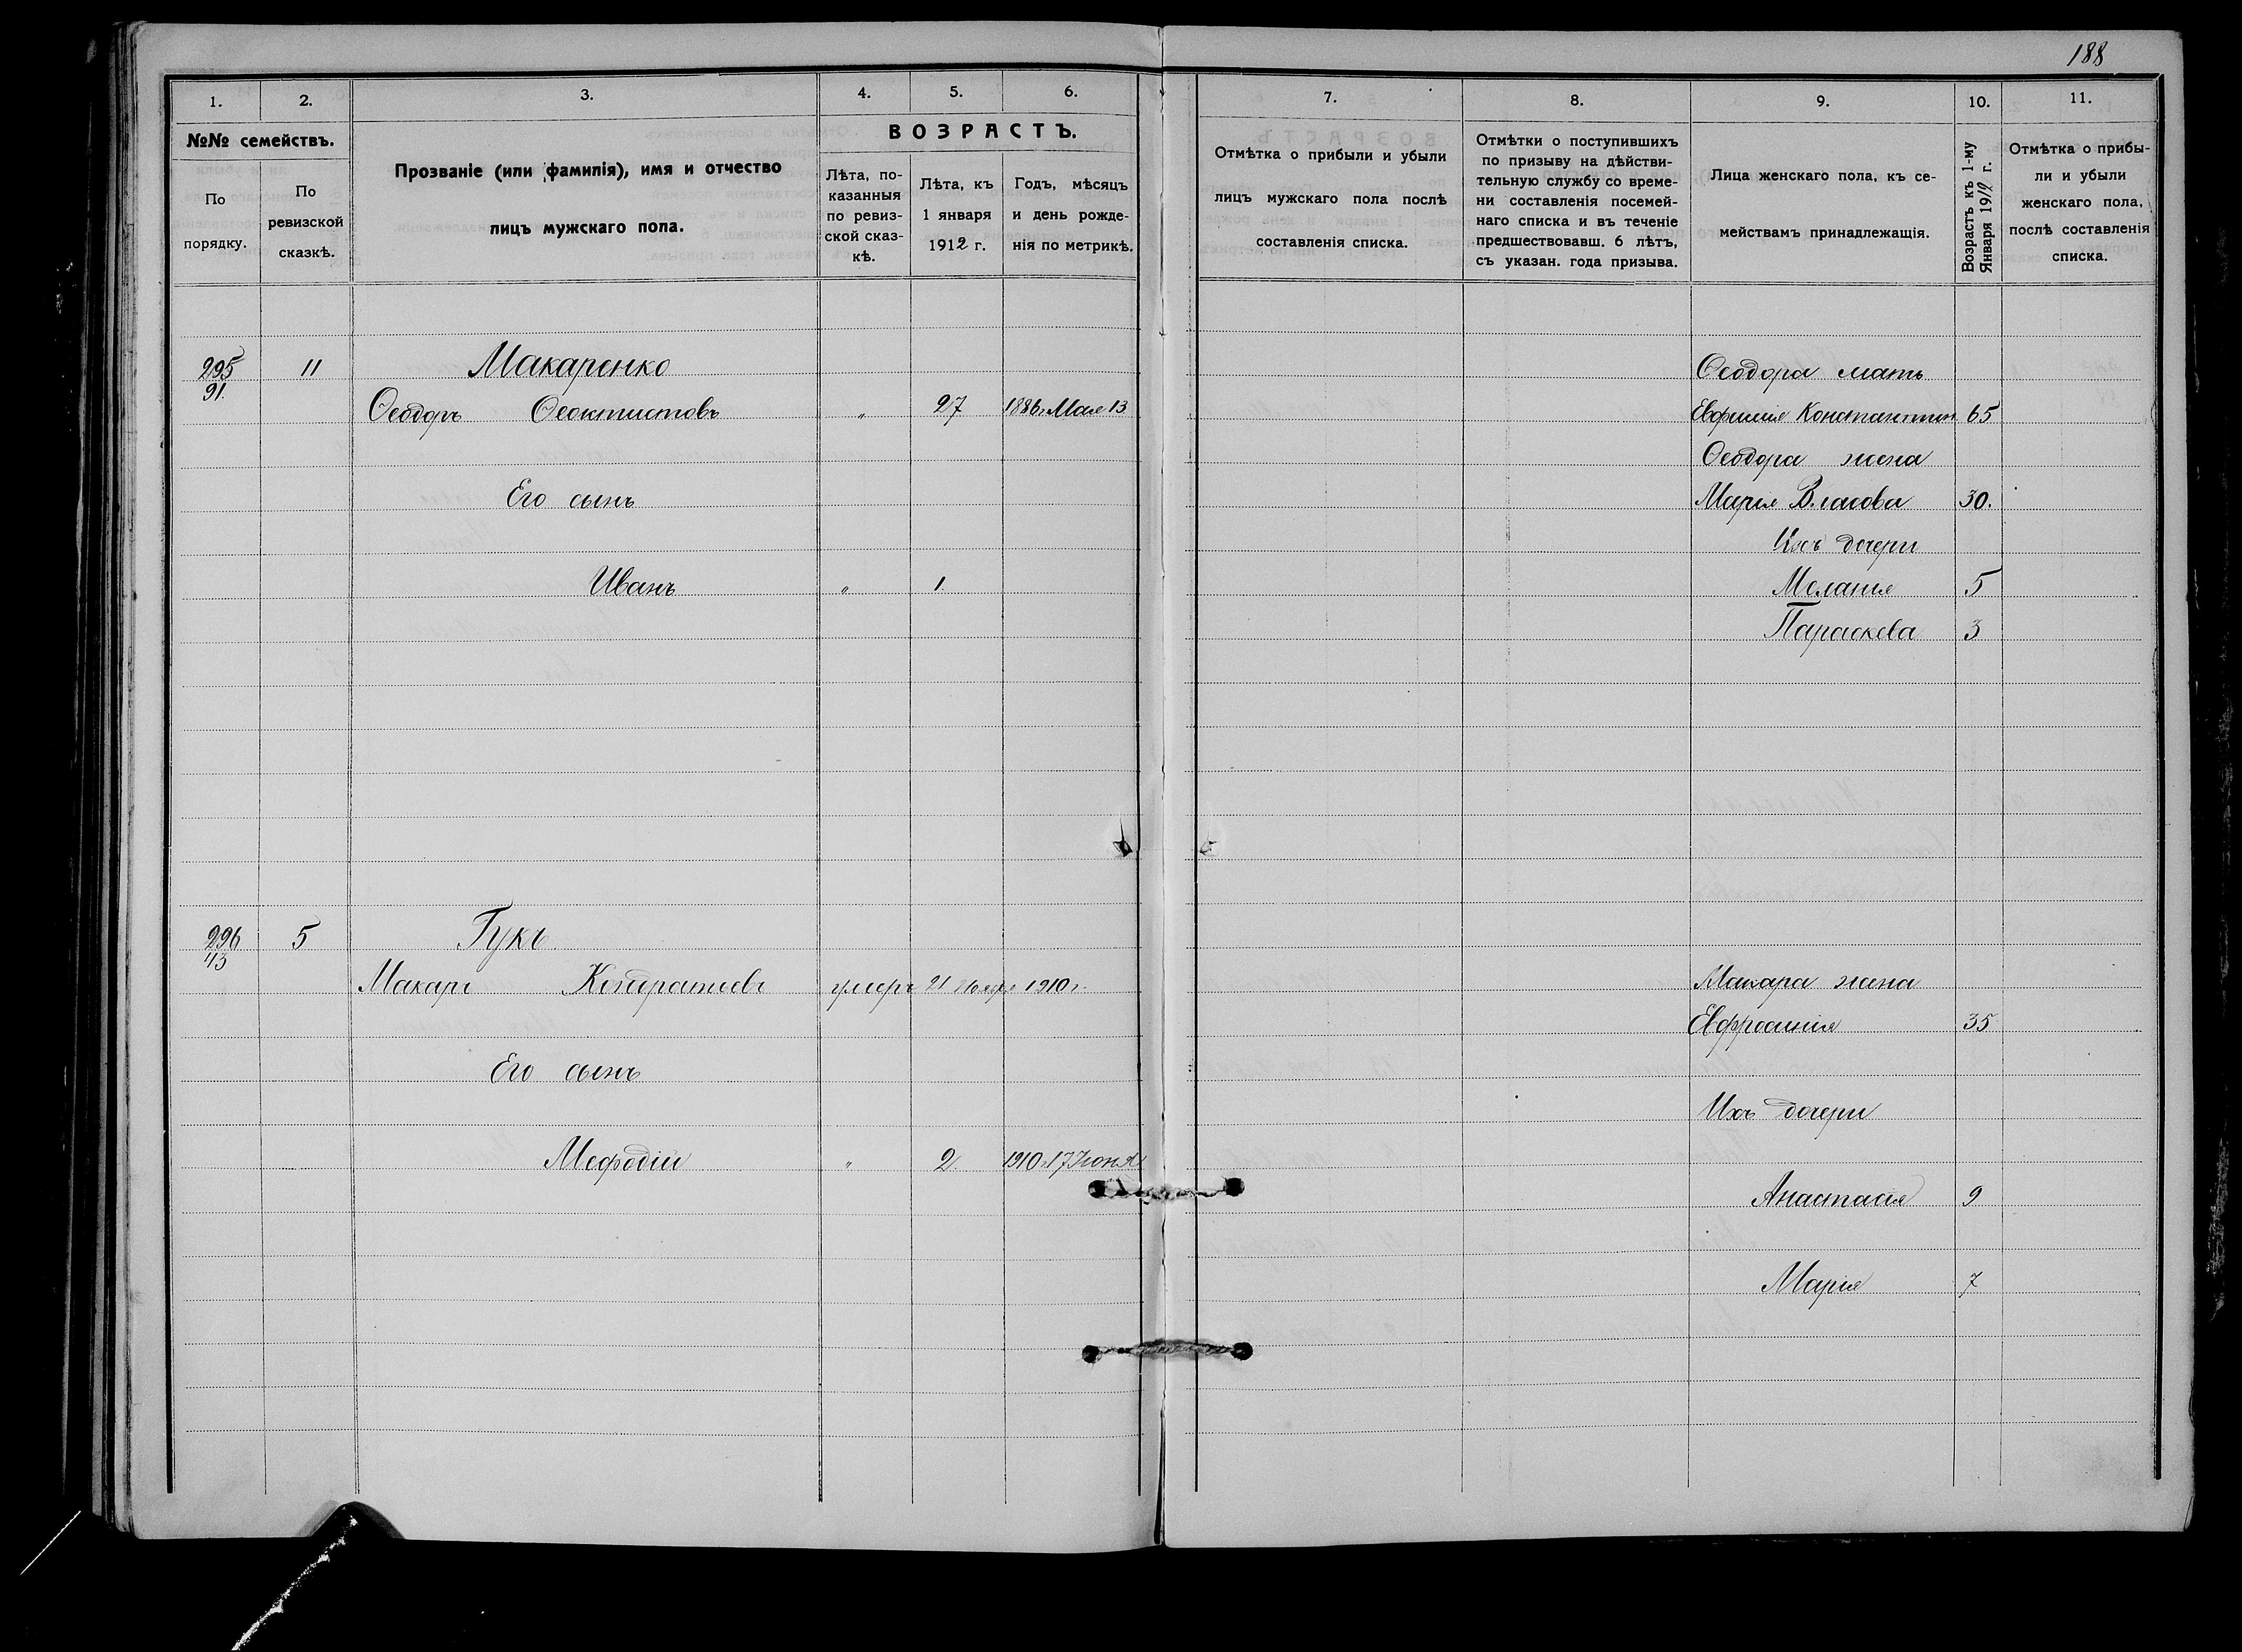 188
1. 2. 3. 4. 5. 6. 7. 8. 9. 10. 11.
№№ семействъ.
По порядку.
По ревизской сказкѣ.
Прозваніе (или фамилія), имя и отчество
лицъ мужскаго пола.
ВОЗРАСТЪ.
Лѣта, по-
казанныя
по ревиз-
ской сказ-
кѣ.
Лѣта, къ
1 января
1912 г.
Годъ, мѣсяцъ
и день рожде-
нія по метрикѣ.
Отмѣтка о прибыли и убыли
лицъ мужскаго пола послѣ
составленія списка.
Отмѣтки о поступившихъ
по призыву на дѣйстви-
тельную службу со време-
ни составленія посемей-
наго списка и въ теченіе
предшествовавш. 6 лѣтъ,
съ указан. года призыва.
Лица женскаго пола, къ се-
мействамъ принадлежащія.
Возрастъ къ 1-му
Января 1912 г.
Отмѣтка о прибы-
ли и убыли
женскаго пола,
послѣ составленія
списка.
295 11 Макаренко Ѳеодора мать
91.
Ѳеодоръ Ѳеоктистовъ " 27 1886 г. Мая 13 Евфимія Константин. 65
Ѳеодора жена
Его сынъ Марія Власова 30.
Ихъ дочери
Иванъ " 1. Меланія 5
Параскева 3
296 5 Гукъ
43
Макаръ Кондратіевъ умеръ 21 1910 г. Макара жена
Евфросинія 35
Его сынъ
Ихъ дочери
Мефодій " 2. 1910 г. 17 Іюня
Анастасія 9
Марія 7